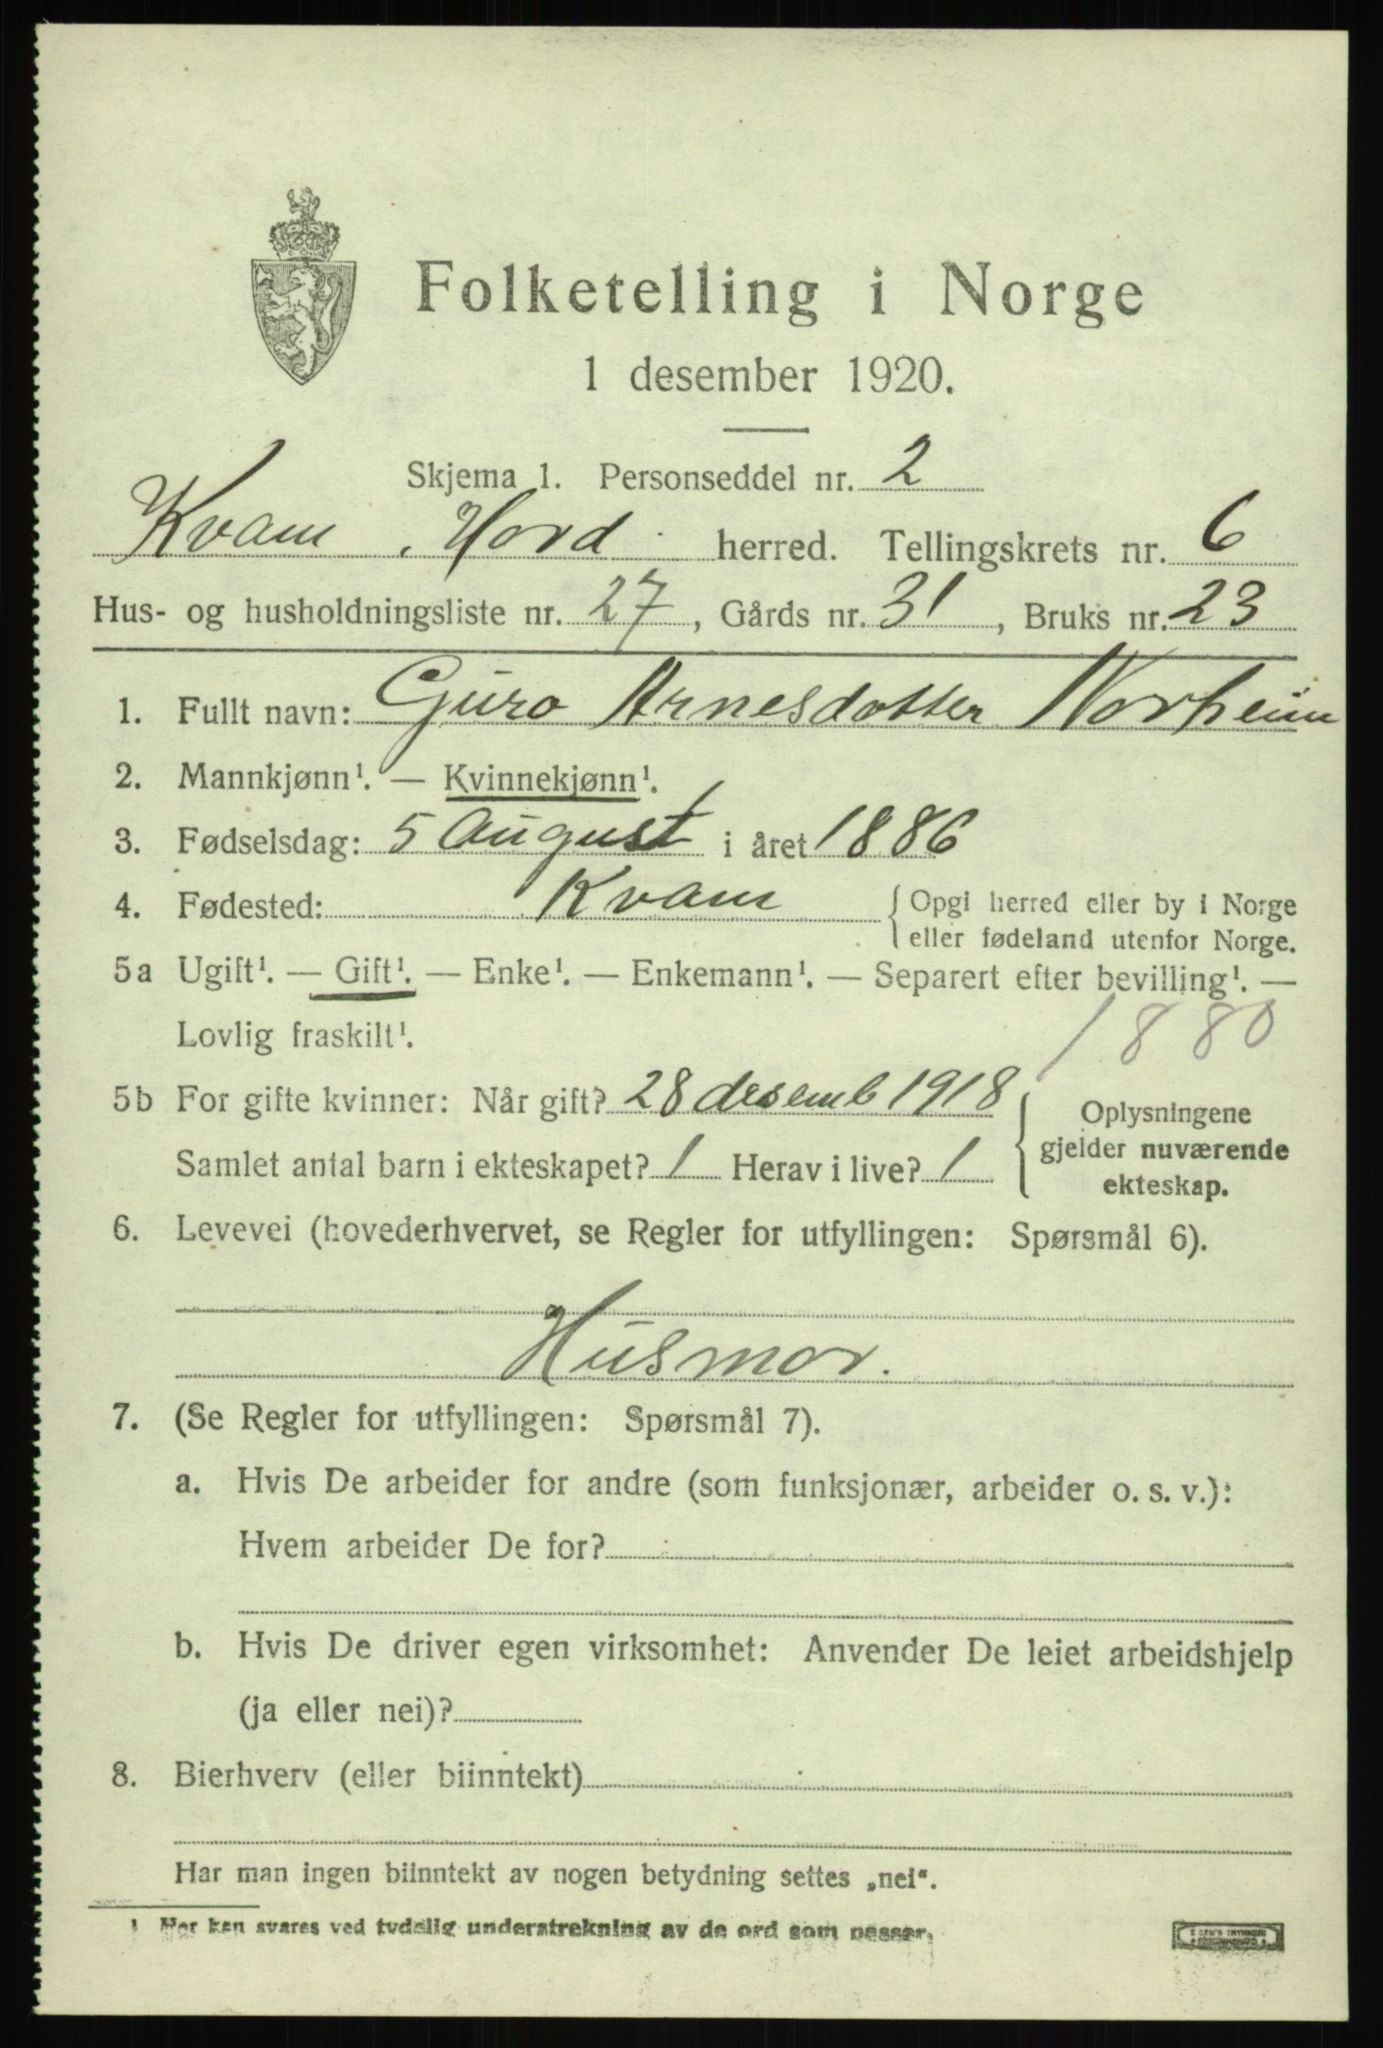 Folketelling i Norge
1 desember 1920.
Skjema 1. Personseddel nr. 2
Kvam, Hord herred. Tellingskrets nr. 6
Hus- og husholdningsliste nr. 27, Gårds nr. 31, Bruks nr. 23
1. Fullt navn: Guro Arnesdotter Norheim
2. Mannkjønn¹. — Kvinnekjønn¹.
3. Fødselsdag: 5 August i året 1886
4. Fødested: Kvam { Opgi herred eller by i Norge
eller fødeland utenfor Norge.
5a Ugift¹. — Gift¹. — Enke¹. — Enkemann¹. — Separert efter bevilling¹. —
Lovlig fraskilt¹. 1880
5b For gifte kvinner: Når gift? 28 desemb 1918 { Oplysningene
gjelder nuværende
Samlet antal barn i ekteskapet? 1 Herav i live? 1 ekteskap.
6. Levevei (hovederhvervet, se Regler for utfyllingen: Spørsmål 6).
Husmor.
7. (Se Regler for utfyllingen: Spørsmål 7).
a. Hvis De arbeider for andre (som funksjonær, arbeider o. s. v.):
Hvem arbeider De for?
b. Hvis De driver egen virksomhet: Anvender De leiet arbeidshjelp
(ja eller nei)?
8. Bierhverv (eller biinntekt)
Har man ingen biinntekt av nogen betydning settes „nei“.
1 Her kan svares ved tydelig understrekning av de ord som passer.